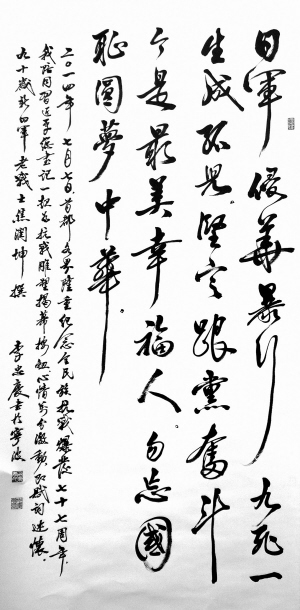 日军侵华暴行九死一
生成孤儿坚定跟党奋斗
今是最美幸福人勿忘国
耻圆梦中华
二〇一四年七月七日首都各界隆重纪念全民族抗战爆发七十七周年
我陪同习近平总书记一起为抗战雕塑揭幕按钮心情万分激动
九十岁新四军老战士焦润坤撰 李忠庆书于宁波